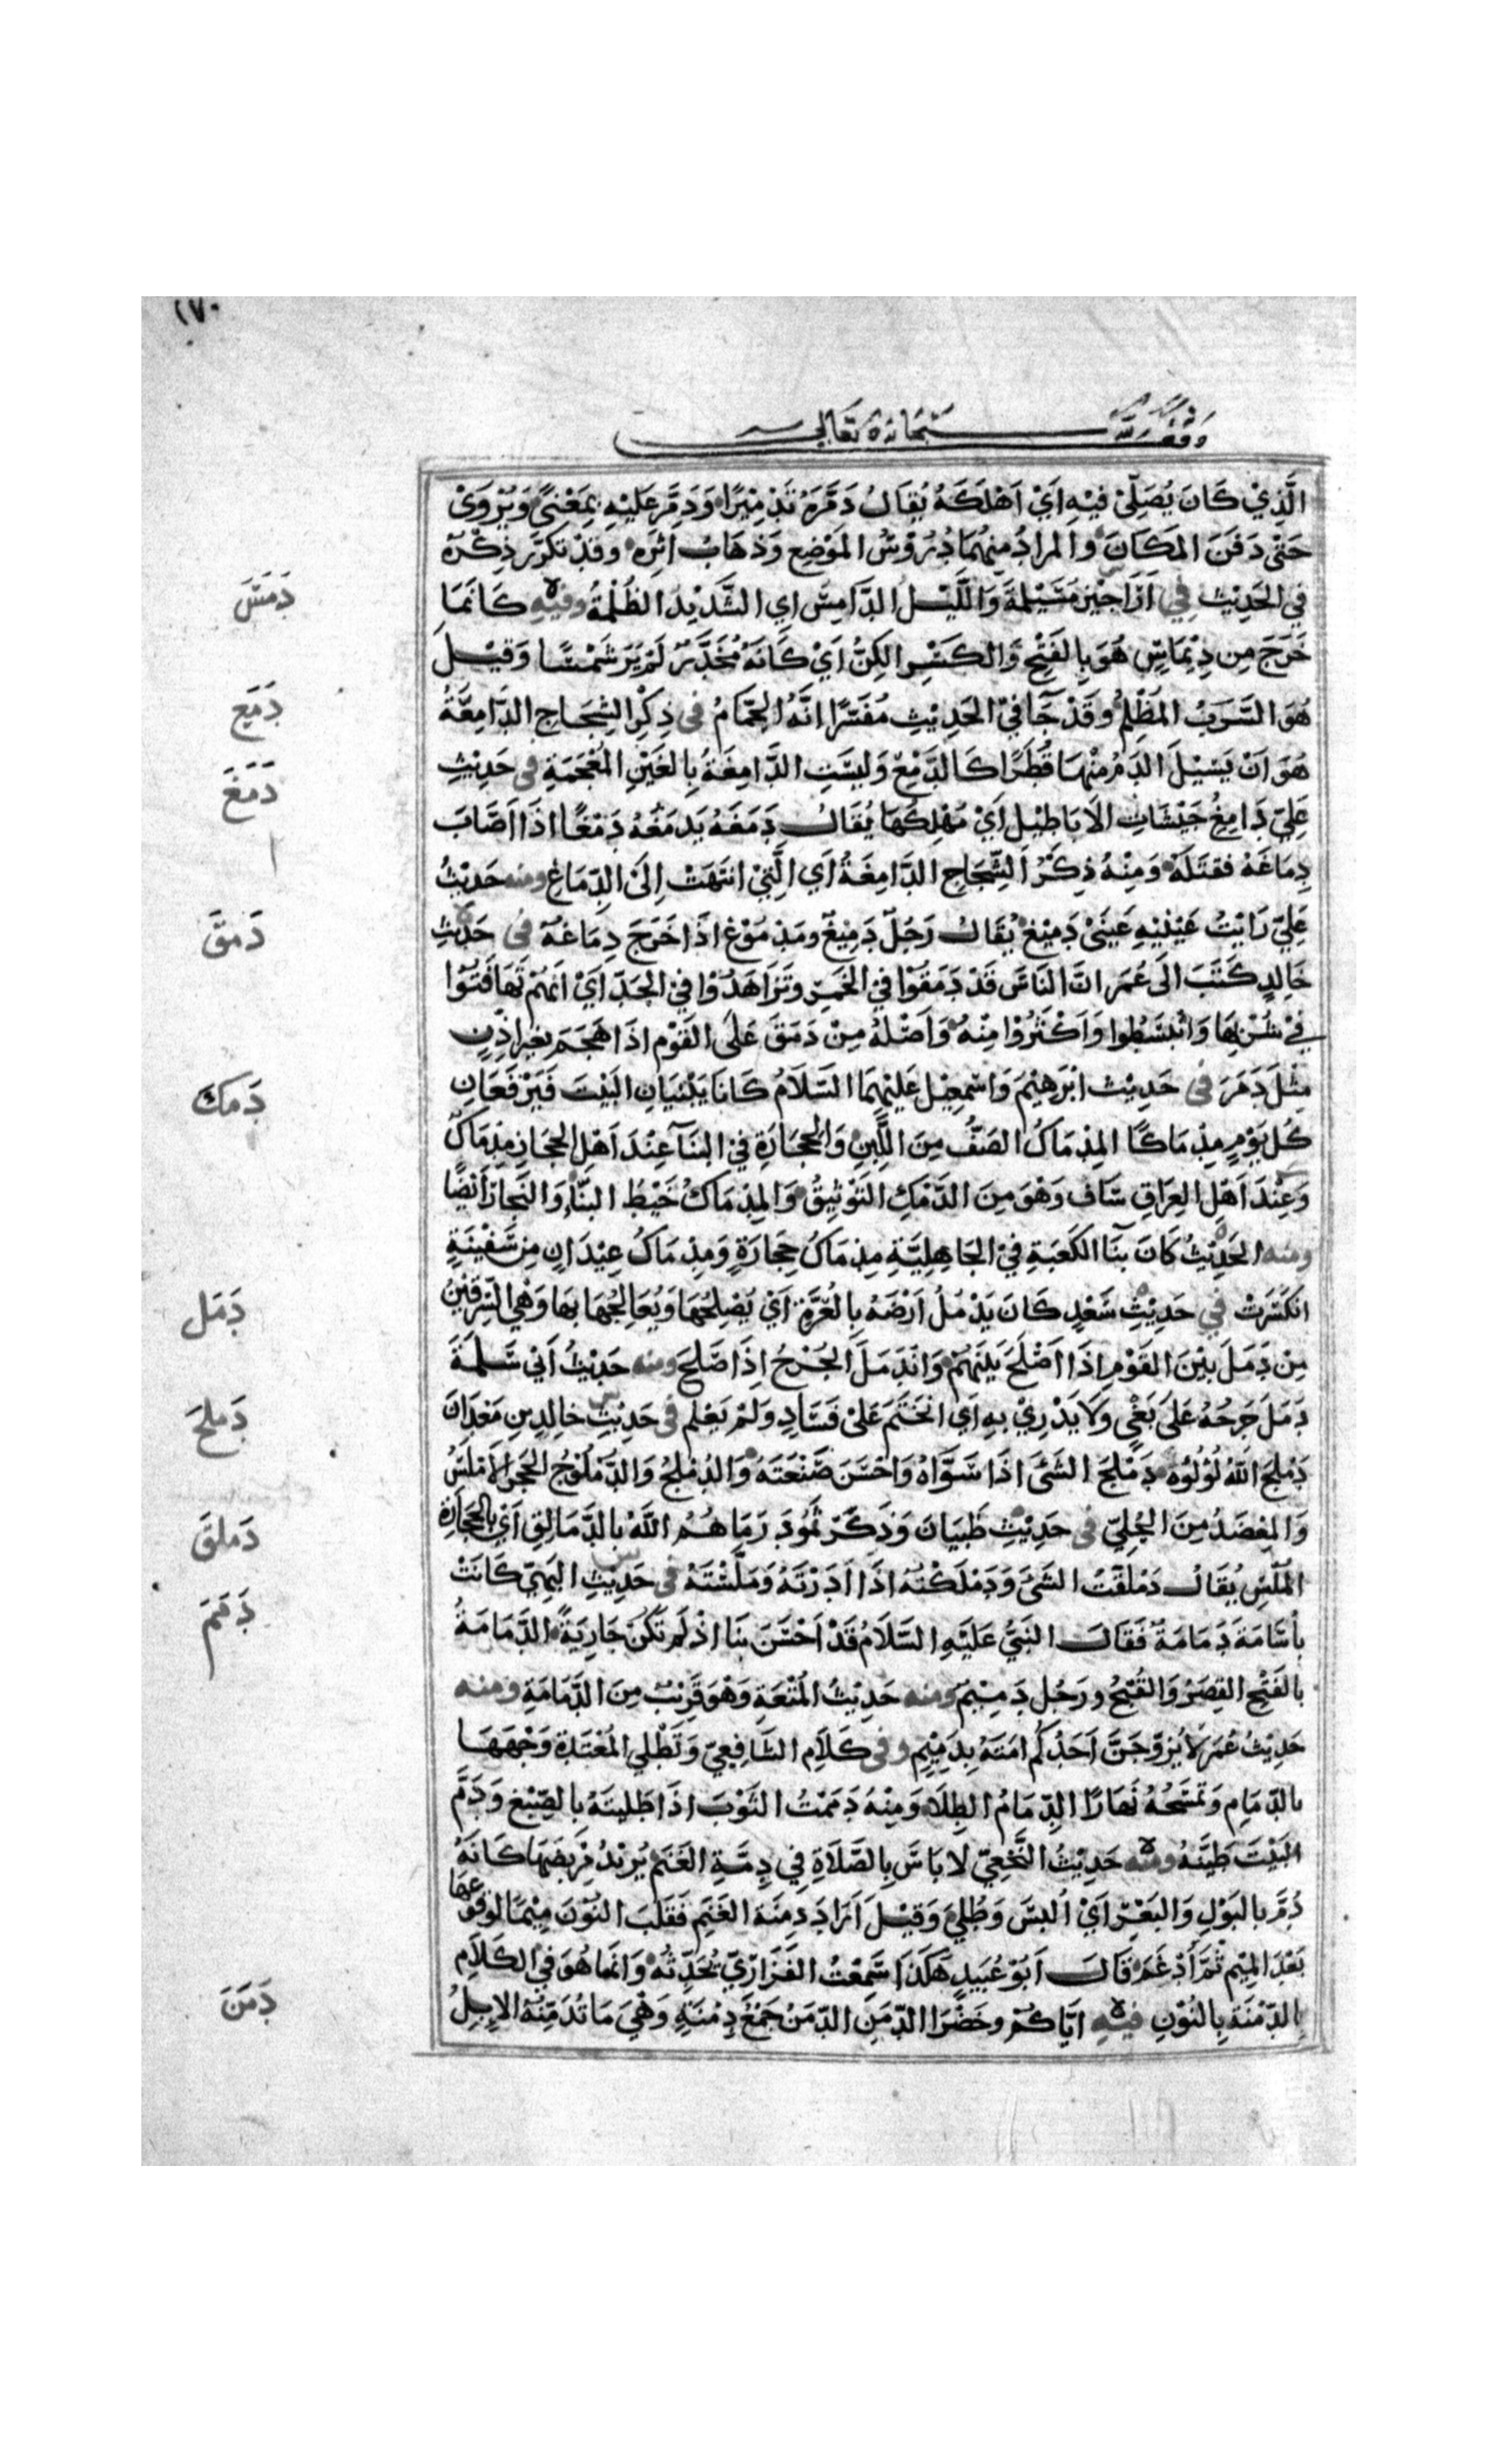 ١٧٠
وقف لله سبحانه وتعالى
الَّذِيْ كَانَ يُصَلِّيْ فِيْهِ اَيْ اَهْلَكَهُ يُقَالُ دَمَّرَهُ تَدْمِيْرًا وَدَمَّرَ عَلَيْهِ بِمَعْنِيً وَيُرْوَىْ
حَتّٰى دَفَنَ المَكَانَ والمرادُ مِنهُمَا دُرُوْسُ المَوْضِعِ وَذهَابُ اثَرِه وَقَدْ تكَرَّر ذِكْرَهُ
دَمَسَ
في الحَدِيْث في اَرَاجِيْزِ مسَيْلمةَ وَاللَّيْلُ الدَّامِسُ اي الشَّدِيْدِ الظُلْمَةُ وفيْهِ كَانَمَا
خَرَجَ مِن دِيْمَاسٍ هُوَ بِالفَتْحِ وَالكَسْرِ الكِنُّ اَيْ كَانَهُ مُخَدَّرٌ لَمْ يَرَ شَمْسًا وَقيْل
دَمَعَ
هُوَ السَّرَبُ المُظْلِمُ وقَدْ جَآ في الحَدِيْثِ مُفَسَّرًا انَّهُ الحمَّامُ فى ذِكْرِ الشِجَاجِ الدَّامِعَةُ
دَمَغَ
هُوَ اَنْ يَسِيْلَ الدَمُ مِنْهَا قُطَرًا كَالدَّمْعِ وَليسَتِ الدَّامِغَةُ بِالغَيْنِ المُعْجَمَةِ فى حَدِيْثِ
عَلِيّ دَامِغُ جَيْشَاتِ الاَبَاطِيْلِ اَيْ مُهْلِكُهَا يُقَالُ دَمَغَهُ يَدمَغُهُ دَمْغًا اذَا اَصَابَ
دِمَاغَهُ فقتَلَهُ وَمِنْهُ ذِكْرُ الشِّجَاجِ الدَّامِغَةُ اَي الَّتِيْ انتَهَتْ اِلَىَ الدِّمَاغِ ومنه حَدِيْثُ
دَمَقَ
عَلِيّ رَايْتُ عَيْنَيْهِ عَينَىْ دَمِيْغٍ يُقَالُ رَجُلٌ دَمِيْغٌ ومَدْمُوْغ اذَا خَرَجَ دِمَاغهُ فى حَدِيْثِ
خَالِدٍ كَتَبَ الَى عُمَرَ انَّ النَاسَ قَدْ دَمَقُوْا فِي الخَمْرِ وتَزَاهَدُوْا في الحَدِّ اَيْ انَهُمْ تَهَافَتُوْا
فِيْ شُرْبِهَا وَانْبَسَطُوا وَاَكْثَرُوْا مِنْهُ وَاَصْلهُ مِنْ دَمَقَ عَلَى القَوْمِ اذَا هَجَمَ بغيرِ اذْنٍ
دَمَكَ
مِثْلَ دَمَرَ فى حَدِيْث ابْرَهِيْمَ وَاسْمعِيْل عَلَيْهِمَا السَّلاَمُ كَانَا يَبْنيَانِ البَيْتَ فَيَرْفَعَانِ
كُل يَوْمٍ مِدْمَاكًا المِدْمَاكُ الصَفُّ مِنَ اللَّبِنِ وَالحِجَارَةِ في البنَآ عِنْدَ اَهْلِ الحِجَازِ مِدْمَاكٌ
وَعِنْدَ اَهْلِ العِرَاقِ سَاف وَهْوَ مِنَ الدَّمْكِ التَوْثِيقُ وَالمِدْمَاكُ خَيْطُ البنَّآءِ وَالنَجار اَيْضًا
ومنه الحَدِيْثُ كَانَ بنَآ الكَعبَةِ فِيْ الجَاهِلِيَّةِ مِدْمَاكُ حِجَارَةٍ وَمِدْمَاكُ عِيْدَانٍ مِن سَفينَةٍ
دَمَلَ
انكَسَرَتْ في حَدِيْثِ سَعْدٍ كَانَ يَدْمُلُ اَرْضَهُ بِالعُرَّةِ اَيْ يُصْلِحُهَا وَيُعَالِجُهَا بهَا وَهْي السِّرقِيْنُ
مِن دَمَلَ بيْنَ القَوْمِ اِذَا اَصْلَحَ بَيْنَهُمْ وَانْدَمَلَ الجُرْحُ اِذَا صَلحَ ومنه حَدِيْثُ ابي سَلمةَ
دَملجَ
دَمَلَ جُرحُهُ عَلَى بَغْيٍ وَلاَ يَدْرِيْ بهِ اَي انخَتَم عَلَىْ فَسَادٍ وَلَمْ يَعْلم فى حَدِيْثِ خالِدِ بنِ مَعْدَانَ
دَمْلَجَ اللّهُ لُؤْلُؤَهُ دَمْلَجَ الشَىَ اذَا سَوَّاهُ وَاحْسَنَ صَنْعَتَهُ وَالدُمْلجُ وَالدُّمْلُوْجُ الحَجَرُ الاَمْلَسُ
دَملقَ
وَالمِعضَدُ مِنَ الحُلِيّ فى حَدِيْثِ ظَبيَانَ وَذَكَرَ ثَمُودَ رَمَاهُمُ اللّهُ بالدَّمَالِقِ اَيْ بالحجَارَةِ
المُلْسِ يُقَالُ دَمْلَقْتُ الشَىَ وَدَمْلَكْتُهُ اذَا اَدَرْتَهُ وَمَلَّسْتَهُ فى حَدِيْثِ البَهِيّ كَانَتْ
دَمَمَ
بأُسَامَةَ دَمَامَةٌ فَقَالَ النَبيُّ عَلَيْهِ السَّلاَمُ قَدْ اَحْسَنَ بنَا اذْ لَم تَكُن جَارِيَةً الدَّمَامَةُ
بالفَتْحِ القِصَرُ وَالقُبْحُ ورَجُل دَمِيْمٌ ومنه حَدِيْثُ المُتْعَةِ وَهْوَ قَرِيْبٌ مِنَ الدَّمَامَةِ ومنه
حَدِيْثُ عُمَرَ لاَ يُزَوِّجَنَّ اَحَدُكُم ابنَتَهُ بِدَمِيْمٍ وفى كَلاَمِ الشَافِعِيّ وَتَطْلِي المُعْتَدّة وَجْهَهَا
بالدِّمَامِ وَتَمْسَحُهُ نَهَارًا الدِّمَامُ الطِلاَءُ وَمِنْهُ دَمَمْتُ الثَوْبَ اذَا طَليتَهُ بِالصِّبْغِ وَدَمَّ
البَيْتَ طَيَّنَهُ ومنه حَدِيْثُ النَّخْعِيّ لا بَاسَ بِالصَّلاَةِ فِي دِمَّةِ الغَنَمِ يُرِيْدُ مَرْبضَهَا كَانَهُ
دُمَّ بالبَوْلِ وَالبَعْرِ اَيْ اُلبِسَ وَطُلِيَ وَقِيْلَ اَرَادَ دِمْنَةَ الغَنَمِ فَقَلَبَ النُوْنَ مِيْمًا لوقوعهَا
بَعْدَ المِيْمِ ثُمَّ اَدْغَمَ قَالَ اَبُوْ عُبَيدٍ هَكَذَا سَمِعْتُ الفَزَارِيَّ يُحَدِّثُهُ وَانمَا هُوَ فِي الكَلاَمِ
دَمَنَ
بِالدِّمْنَةِ بِالنُوْنِ فيْهِ ايَّاكُمْ وخَضْرَا الدِّمَنِ الدِّمَنُ جَمْعُ دِمْنَةٍ وَهْيَ مَا تُدَمِّنُهُ الابِلُ